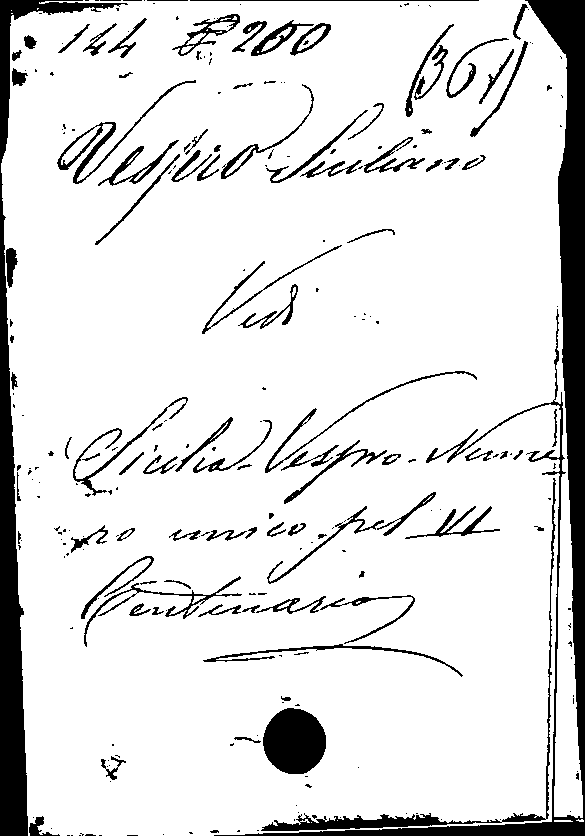 144 E 200 (361)
Vespro Siciliano
Vedi
Sicilia-Vespro-Nume-
ro unico pel VI
Centenario